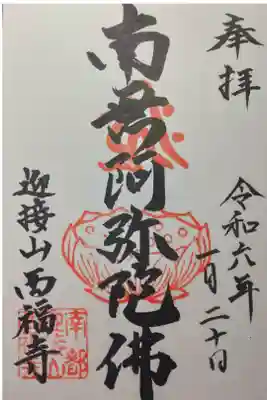 奉拝
令和六年
一月二十日
南無阿弥陀佛
迎接山西福寺